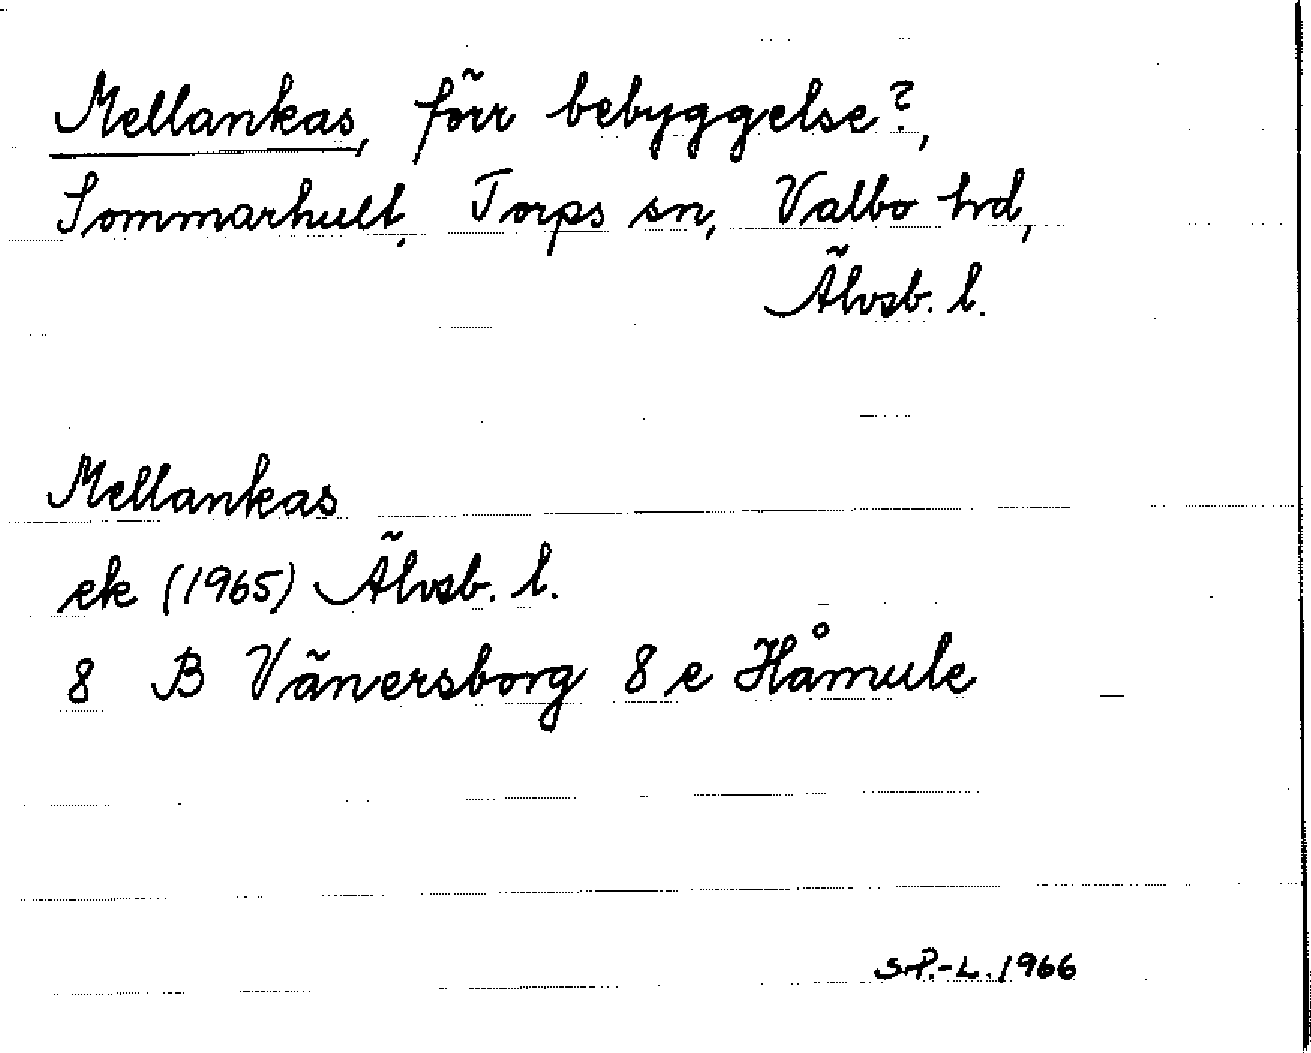 Mellankas, förr bebyggelse?,
Sommarhult, Torps sn, Valbo hd,
Älvsb. l.
Mellankas
ek (1965) Älvsb. l.
8 B Vänersborg 8 e Håmule
S.P.-L. 1966